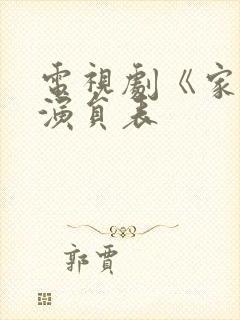 電視劇《家
演員表
郭賈